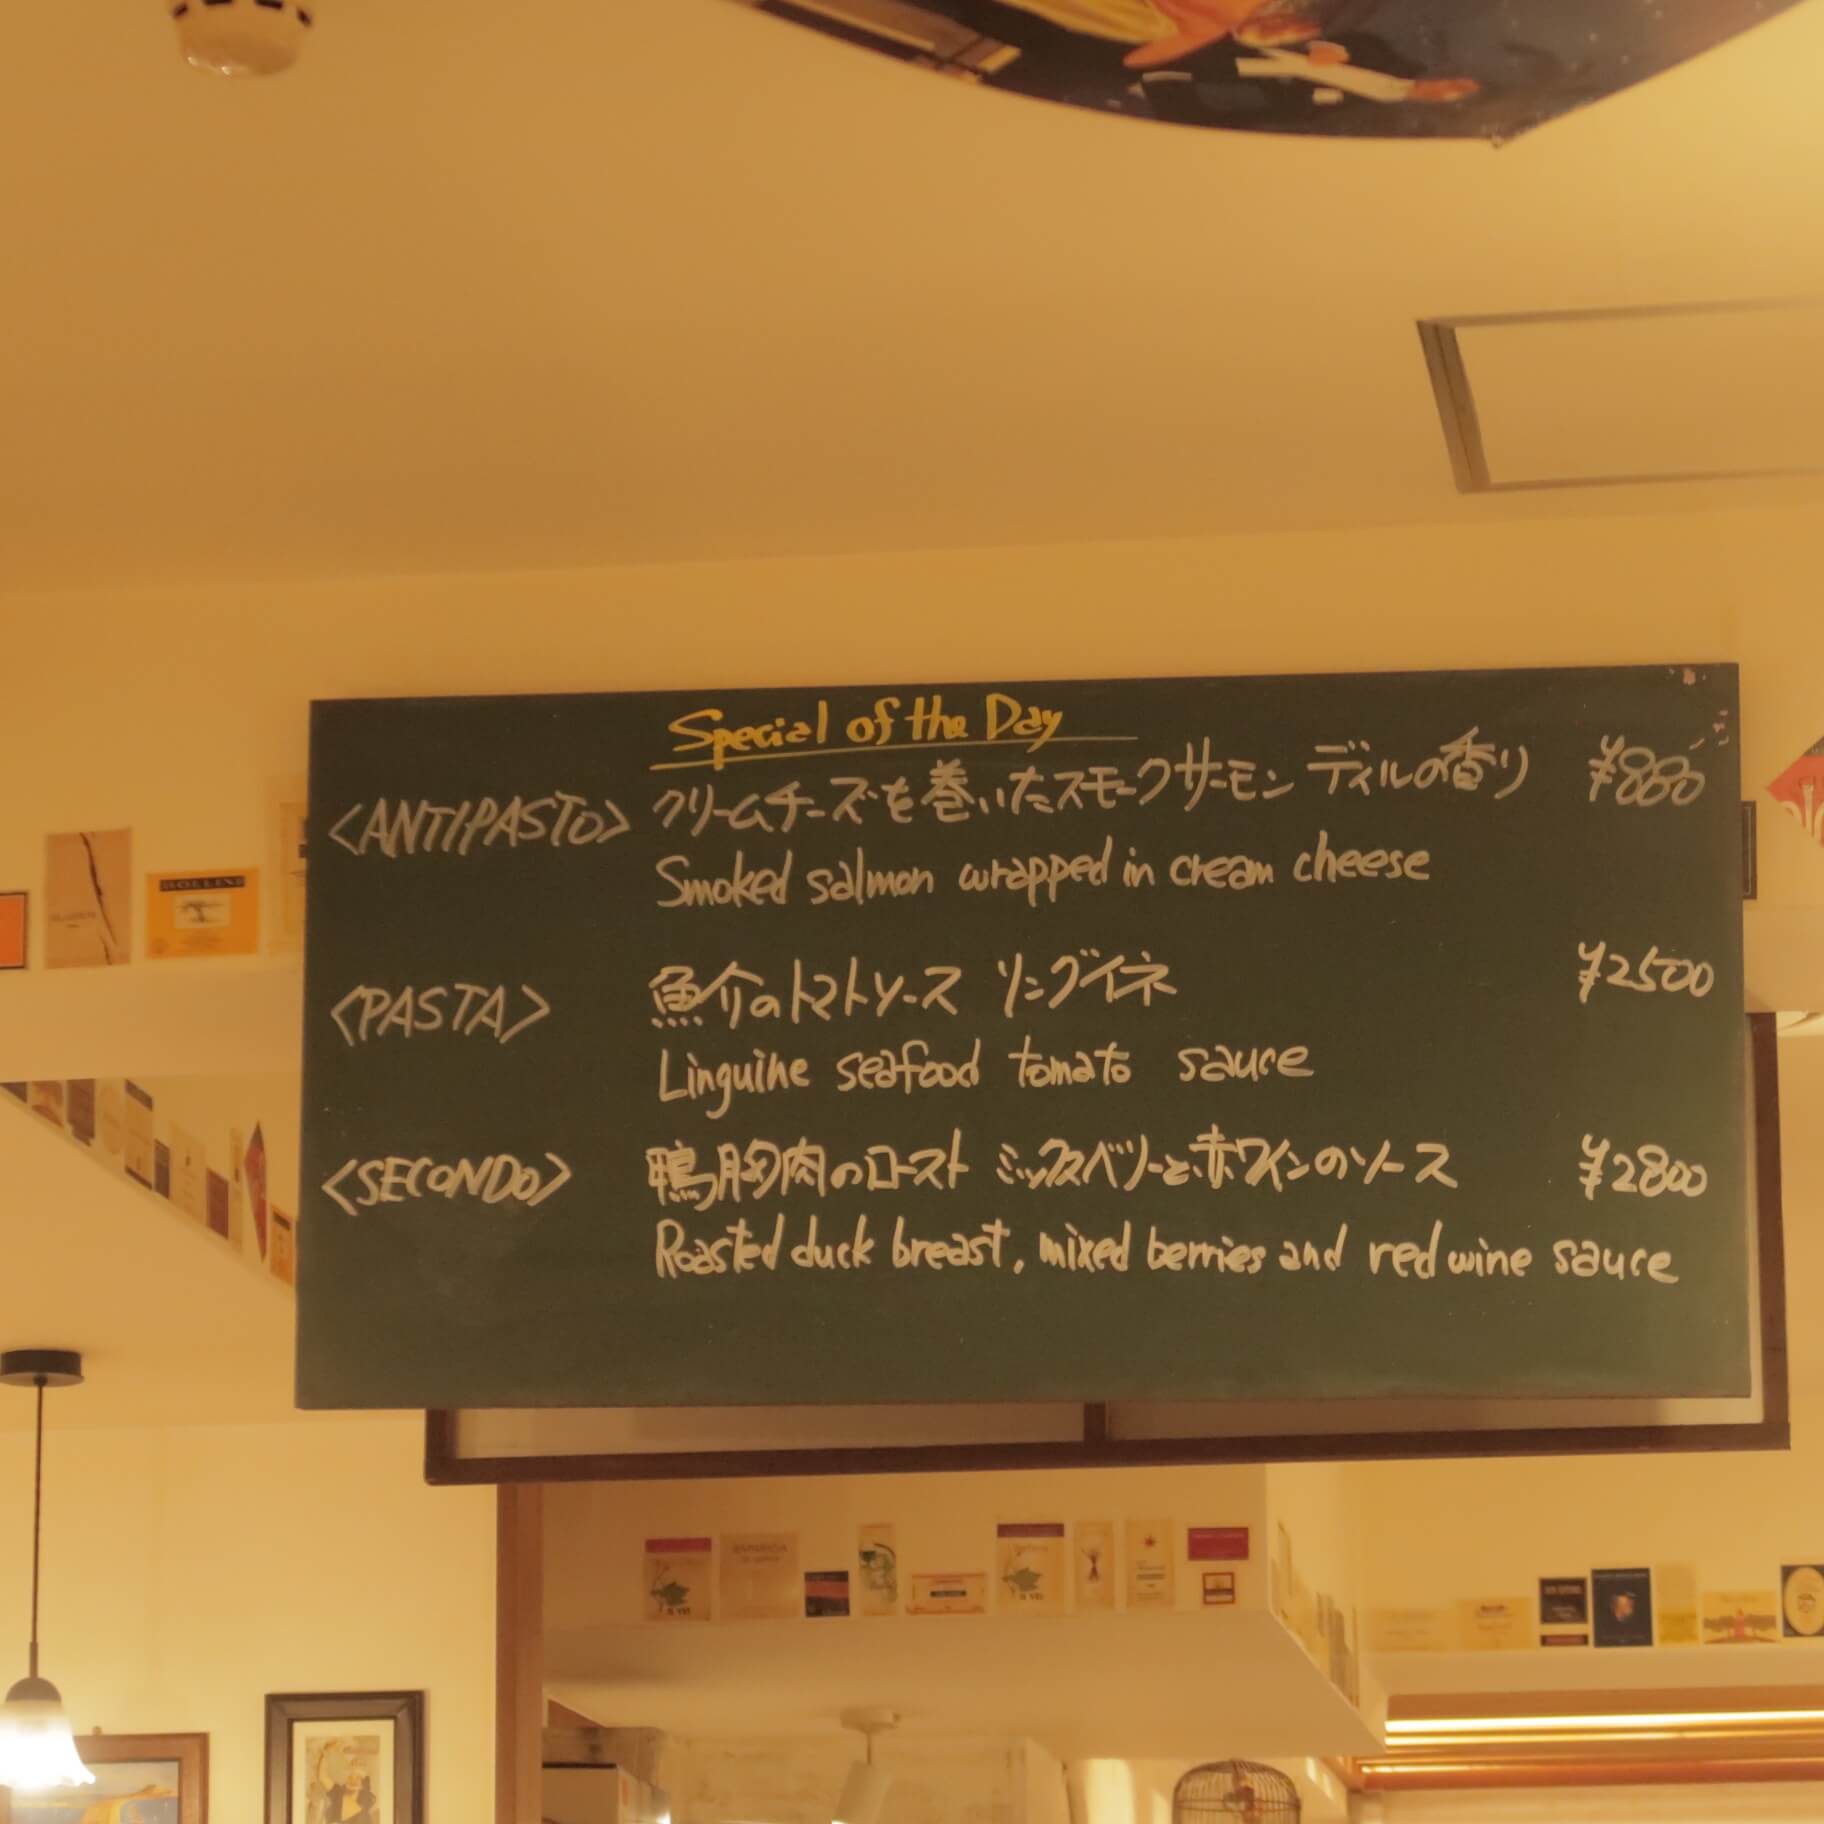 Special of the Day
<ANTIPASTO> クリームチーズを巻いたスモークサーモン ディルの香り ¥880
Smoked salmon wrapped in cream cheese
<PASTA> 魚介のトマトソース リングイネ ¥2500
Linguine seafood tomato sauce
<SECONDO> 鴨胸肉のロースト ミックスベリーと赤ワインのソース ¥2800
Roasted duck breast, mixed berries and red wine sauce